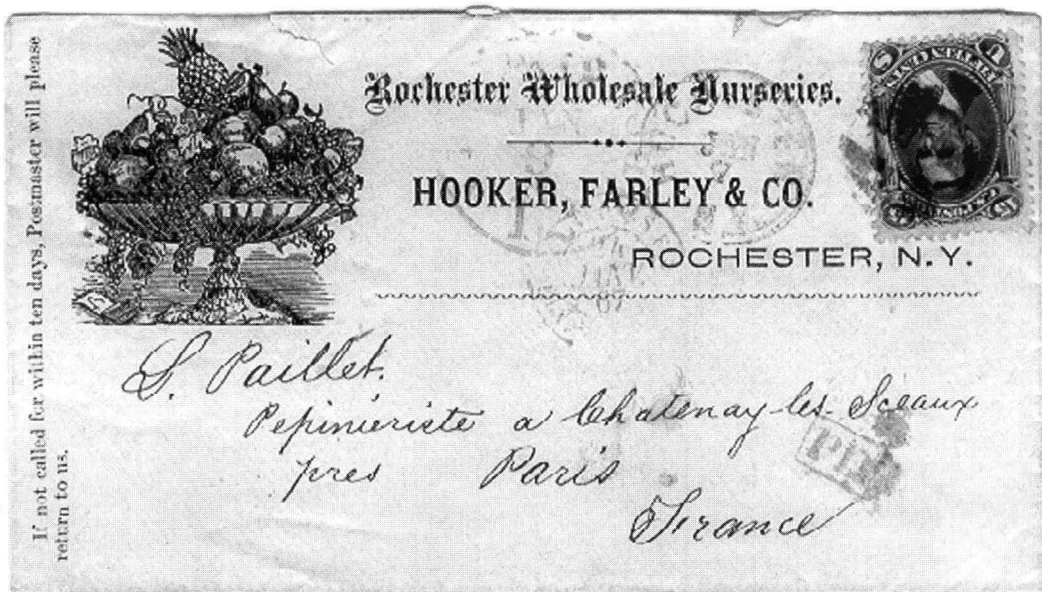 If not called for within ten days, Postmaster will please
return to us.
Rochester Wholesale Nurseries.
HOOKER, FARLEY & CO.
ROCHESTER, N.Y.
L. Paillet.
Pepinieriste a Chatenay-les-Sceaux
pres Paris
France